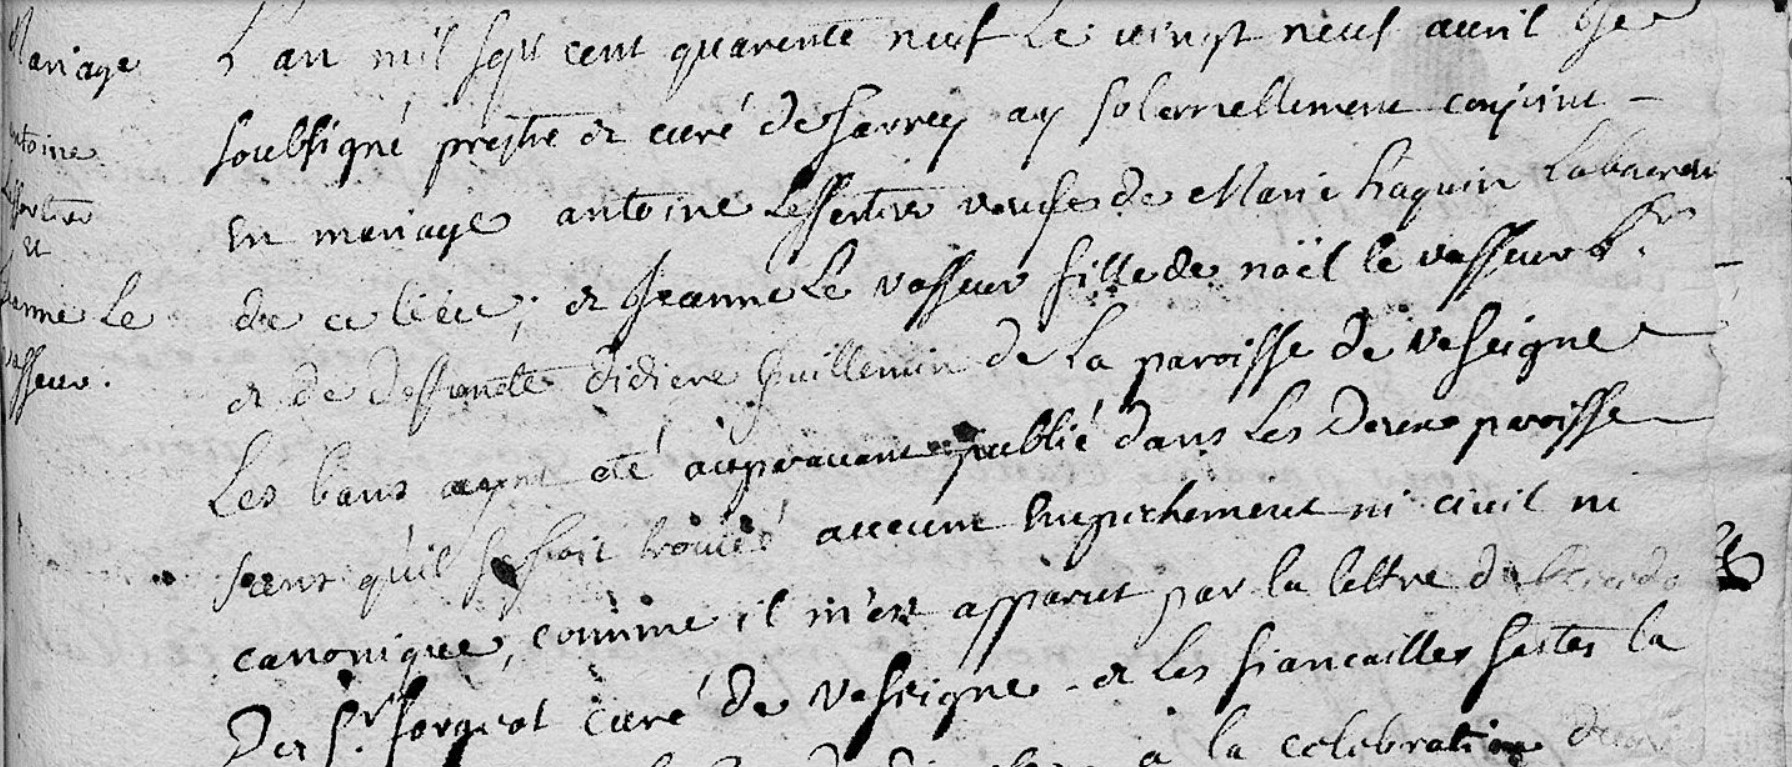 Mariage
antoine
Lessertere
et
Jeanne Le
vasseur.
L'an mil sept cent quarente neuf Le vingt neuf avril Je
soubsigné prestre et curé de Sarrey ay solemnellement conjoint
En mariage antoine Lessertere veufe de Marie haquin
de ce lieu, et Jeanne Le vasseur fille de noël le vasseur
et de deffuncte didiere Guillemin de La paroisse de veseigne
Les bans aynt eté auparavant publié dans Les Deux paroisse
sans qu'il se soit trouvé aucune Empechement ni civil ni
canonique, comme il m'est apparut par la lettre de
Du Sr. forgeot curé de veseigne - et les fiancailles faites la
à la celebration du